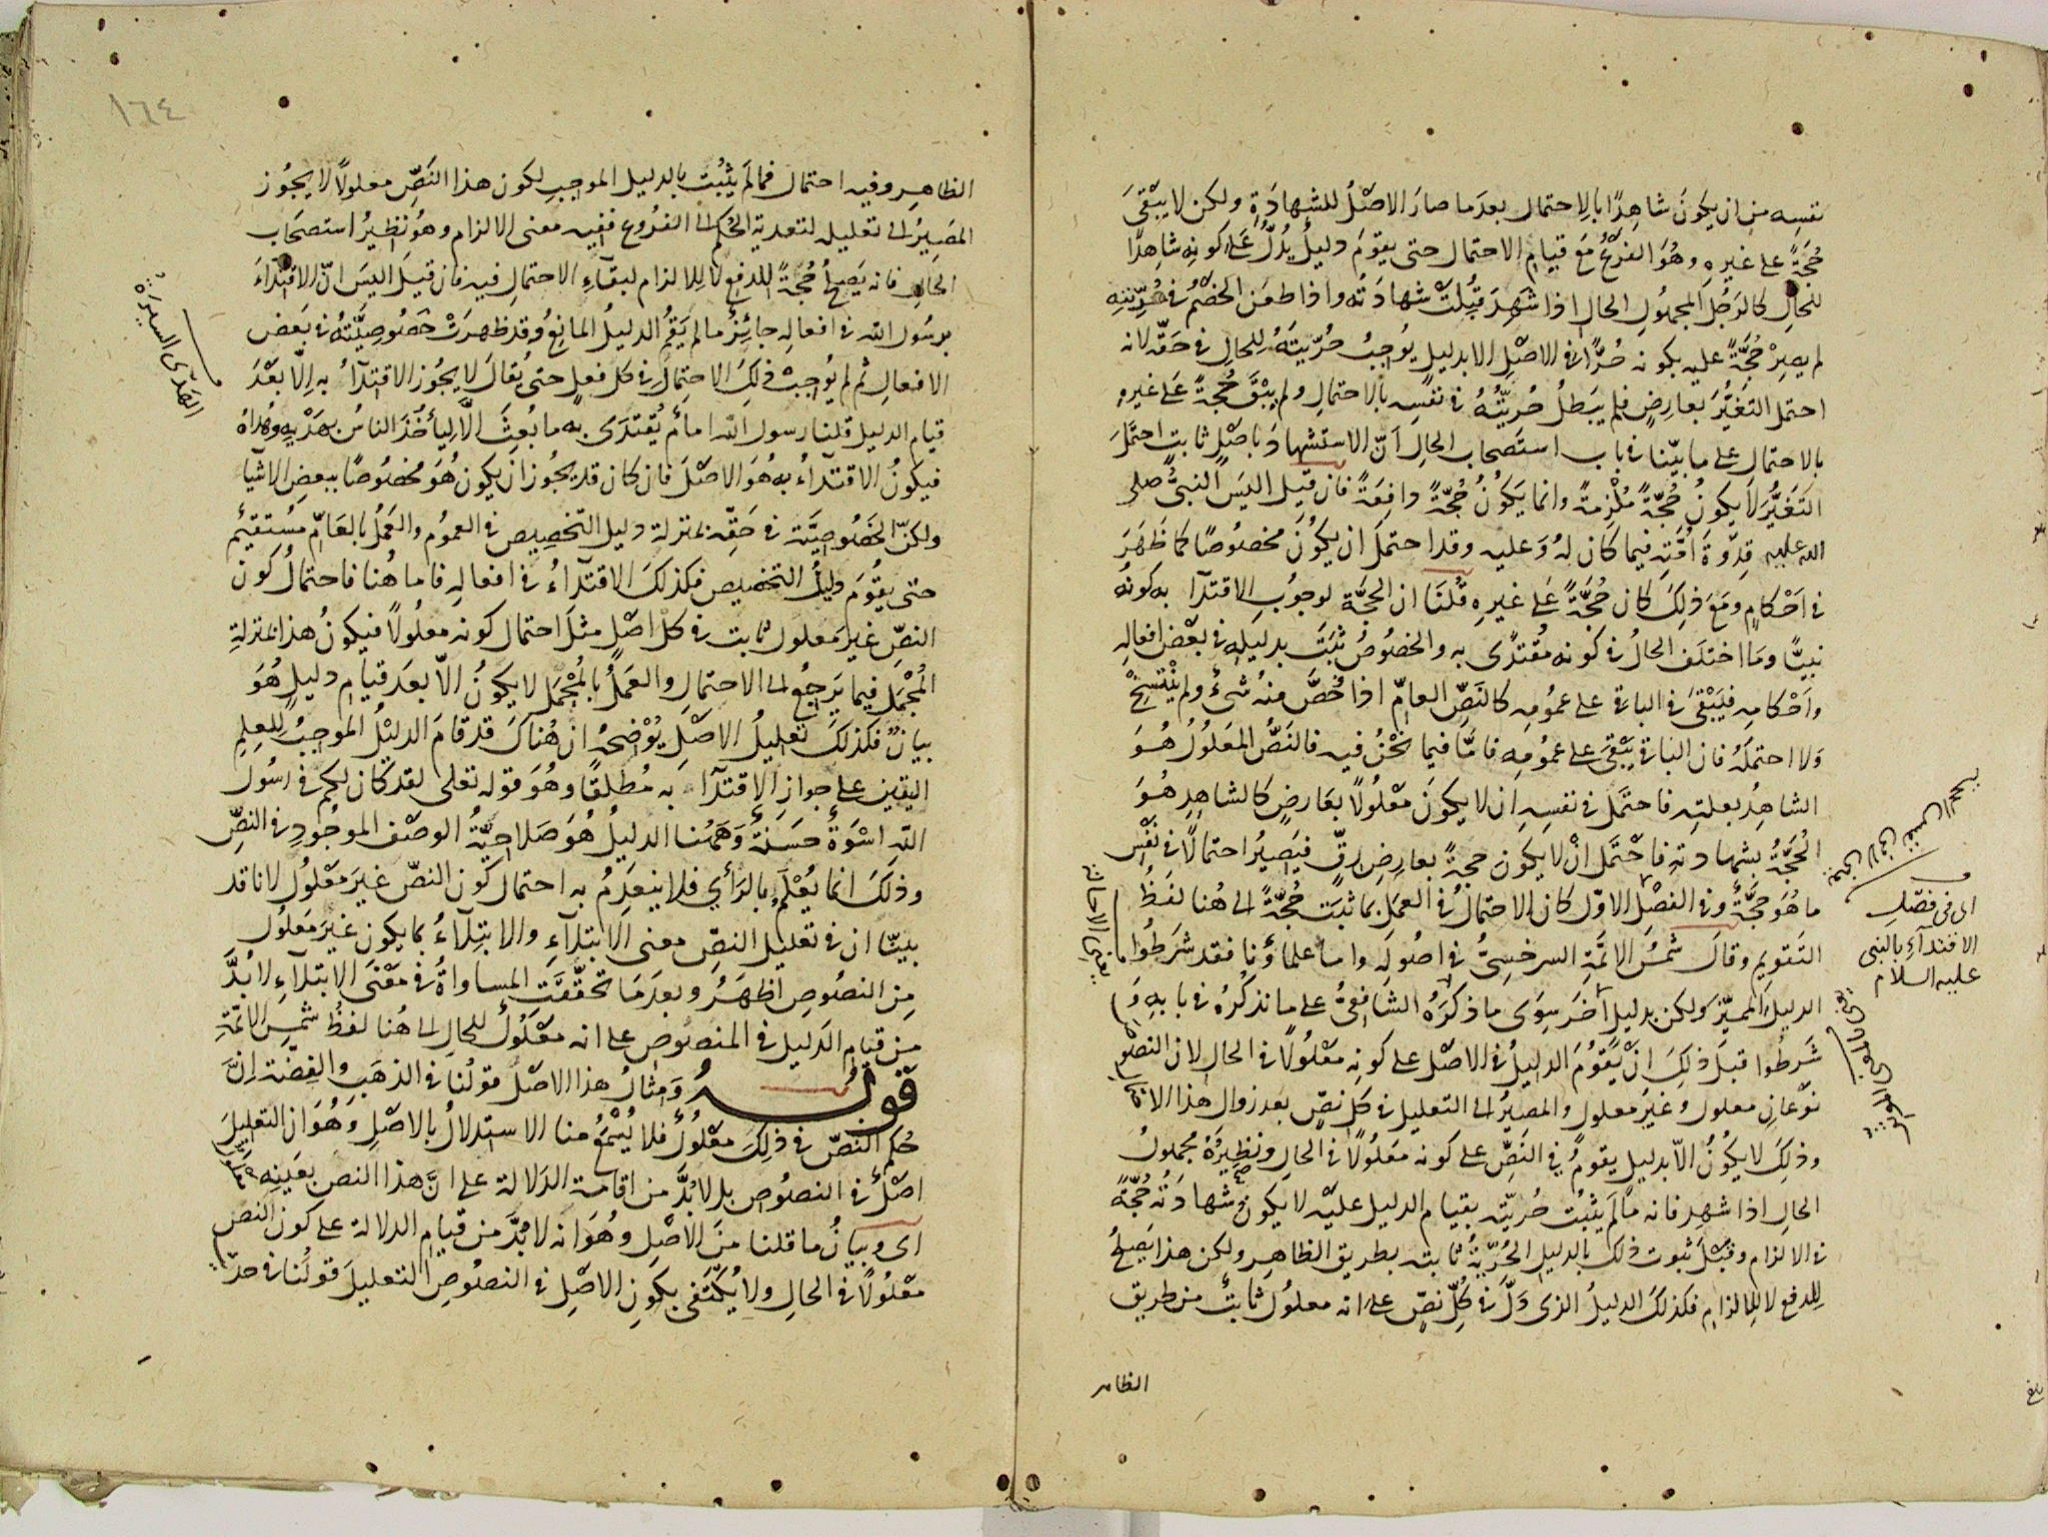 نفسه من ان يكونَ شاهدًا بالاحتمال بعدَما صارَ الاصْلُ للشهادَةِ ولكن لا يبْقىَ
حُجّةً على غيره وهُوَ الفرْعُ مَعَ قيامِ الاحتمال حتى يقومَ دليلٌ يدُلُّ عَلى كونِه شاهِدًا
للحالِ كالرَجُلِ المجهُولِ الحالِ اذا شَهِدَ قُبِلَتْ شهادَتُه واذا طعَن الخصْمُ في حُرّيّتِهِ
لم يصِرْ حُجّةً عليه بكونه حُرًّا في الاصْلِ الا بدليلٍ يُوجِبُ حُرّيتَهُ للحالِ في حَقّه لانه
احتمل التغيُّرَ بعارِضٍ فلم يبَطلُ حُريّتُهُ في نفسِه بالاحتمالِ ولم يبْقَ حُجّةً عَلى غيرهِ
بالاحتمالِ على ما بيّنا في باب استصحاب الحالِ اَنّ الاستشهادَ باصْلٍ ثابتٍ احتمَلَ
التَغيُّرَ لا يكونُ حُجّةً مُلْزِمةً وانما يَكونُ حُجّةً دافِعَةً فان قيل اليسَ النبيُّ صلى
الله عليه قِدْوةَ اُمّتِه فيما كان لهُ وَعليه وقد احتمَلَ ان يكُونَ مخصُوصًا كما ظَهَرَ
في اَحْكامٍ ومَعَ ذلِكَ كان حُجّةً عَلى غيرِهِ قُلنَا ان الحجّة لوجُوبِ الاقتدآ به كونُه
نبيًّا وَما اختلَف الحالُ في كونه مُقتدًى به والخصُوصُ ثبَتَ بدليلِه في بَعْض افعالِه
واَحْكامِه فيَبْقىَ في الباقي على عمُومِه كالنَصِّ العامِّ اذا خُصَّ منهُ شيءٌ ولم ينْتسِخْ
وَلا احتملَهُ فان الباقي يبْقىَ على عمُومِه فامَّا فيما نحْنُ فيه فالنَصُّ المَعلُولُ هُوَ
الشاهِدُ بعلتِه فاحتَمَل في نفسِهِ ان لا يكونَ مَعْلُولًا بعَارضٍ كالشاهِدِ هُوَ
الحُجّةُ بشهادتِه فاحْتمَل انْ لا يكون حجةً بعارِضِ رِقٍّ فيَصِيرُ احتمالًا في نفْسِ
ما هُوَ حجّةٌ وفي الفصْلِ الاوّل كان الاحتمالُ في العمَلِ بما ثبَتَ حُجّةً الى هُنا لفَظُ
التَقويم وقالَ شمْسُ الائمّةِ السرخسِيُّ في اصُولِه واما علماؤُنا فقد شرَطُوا
الدليلَ المميّزَ ولكن بدليلٍ آخرَ سِوَى ما ذكَرَهُ الشافِعيُّ على ما نذكُرُه في بابِهِ وَ
شَرطُوا قبلَ ذلِكَ انْ يَقُومَ الدليلُ في الاصْل على كونِه مَعْلُولًا في الحالِ لان النصُوصَ
نوْعانِ معلول وغيرُ معلول والمصيرُ الى التعليل في كلّ نصٍّ بعد زوال هذا الا
وذلِكَ لا يكُونُ الاّ بدليلٍ يقومُ في النَصِّ على كونه مَعلُولًا في الحالِ ونظِيرُهُ مجهُولُ
الحالِ اذا شهد فانه ما لَم يثبُت حُرّيّته بقيام الدليل عليْه لا يكونُ شهادَتُه حُجّةً
في الالزام وقبْلَ ثبوت ذلك بالدليلِ الحُرّيّةُ ثابته بطريق الظاهِرِ ولكن هذا يَصلُحُ
للِدفع لا للِالزام فكذلكَ الدليلُ الذي دَلَّ في كُلِّ نصٍّ عَلى انه معلُول ثابتٌ من طريق
الظاهر
اى في فصْل
الاقتدآءِ بالنبي
عليه السلام
١٦٤
الظاهِر وفيه احتمال فما لَم يثبُت بالدليل الموجب لكون هذا النَصِّ معلولًا لا يجُوز
المَصِيرُ الى تعليلِه لتعدية الحُكم الى الفرُوعِ ففيه معنى الالزام وهُو نظِيرُ استصحَاب
الحَالِ فانه يَصلُحُ حُجّةً للدفع لا للالزام لبقآءِ الاحتمالِ فيه فان قيلَ اليسَ انّ الاقتدآءَ
برسُول الله في افعالِه جائِزٌ ما لم يَقُم الدليلُ المانِعُ وقد ظهرَتْ خصُوصِيّتُهُ في بَعض
الافعالِ ثم لم يُوجِبْ ذلِكَ الاحتِمالُ في كلّ فعلٍ حتى يُقالَ لا يجُوز الاقتدآءُ به الّا بعْدَ
قيام الدليل قلنا رسول الله امامٌ يُقتدَى به ما بُعِثَ الّا ليأخُذَ الناسُ بهَدْيِهِ وهُداهُ
فيكونُ الاقتدآءُ به هُوَ الاصْلَ فان كان قد يجُوز ان يكون هُوَ مخصُوصًا ببعضِ الاشيا
ولكنّ الخصُوصِيّة في حَقِّه بمنزلة دليل التخصِيص في العمُوم والعمَلُ بالعَامّ مُستقيْم
حتى يقُومَ دليلُ التخصيص فكذلكَ الاقتدآءُ في افعالِهِ فاما هُنا فاحتمالُ كون
النصِّ غيرَ معلول ثابت في كلّ اصْلٍ مثلَ احتمالِ كونه معلُولًا فيكونُ هذا بمنزلةِ
المُجْمَلِ فيما يَرجِعُ الى الاحتمالِ والعَمَلُ بالمُجْمَلِ لا يكونُ الّا بعدَ قيام دليلٍ هُوَ
بيانٌ فكذلكَ تعليلُ الاصْلِ يوُضِحُهُ ان هُناكَ قد قامَ الدليْلُ الموجِبُ للعِلمِ
اليقينِ عَلى جوازِ الاقتدآءِ به مُطلقًا وهُوَ قوله تعلى لقد كان لكم في رسُول
الله اسْوَةٌ حَسَنةٌ وَهَهُنا الدليلُ هُوَ صَلاحِيّةُ الوصْفِ الموجُودِ في النصِّ
وذلِكَ انما يُعْلَمُ بالرَأيِ فلا ينعدِمُ به احتمال كون النصّ غيرَ معْلُولٍ لانا قد
بيّنا ان في تعليل النصِّ معنى الابتلآءِ والابتلآءُ بما يكون غيرَ مَعلُولٍ
مِن النصُوصِ اظْهَرُ وبعدَ ما تحقّقَتِ المساواةُ في مَعْنىَ الابتلآءِ لا بُدَّ
من قيام الدَليل في المنصُوص على انه معْلُولٌ للحال الى هُنا لفظُ شمس الائمّة
قولـــه وَمثالُ هذا الاصْلُ قولُنا في الذهَبِ والفِضّة انَّ
حُكمَ النصّ في ذلِكَ معْلُولٌ فلا يُسْمَعُ منا الاستدلالُ بالاصْلِ وهُوَ ان التعليلَ
اصْلٌ في النصُوص بل لا بُدَّ من اقامة الدَلالة على انَّ هذا النص بعَينِه معلول
اى وبيانُ ما قلنا منَ الاصْلِ وهُوَ انه لا بُدَّ من قيام الدلالة على كون النص
مَعْلُولًا في الحالِ ولا يُكتَفى بكونِ الاصْلِ في النصُوصِ التعليلَ قولُنا في
الهَدْى السيرة